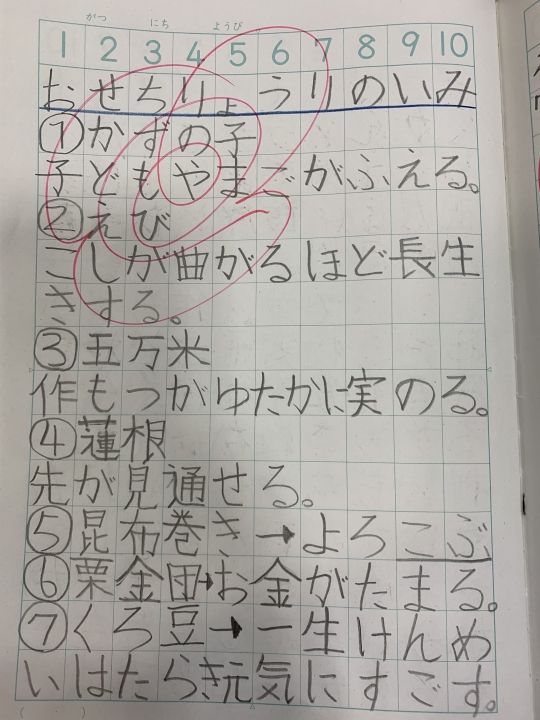 がつ にち ようび
1 2 3 4 5 6 7 8 9 10
おせちりょうりのいみ
①かずの子
子どもやまごがふえる。
②えび
こしが曲がるほど長生
きする。
③五万米
作もつがゆたかに実のる。
④蓮根
先が見通せる。
⑤昆布巻き→よろこぶ
⑥栗金団→お金がたまる。
⑦くろ豆→一生けんめ
いはたらき元気にすごす。